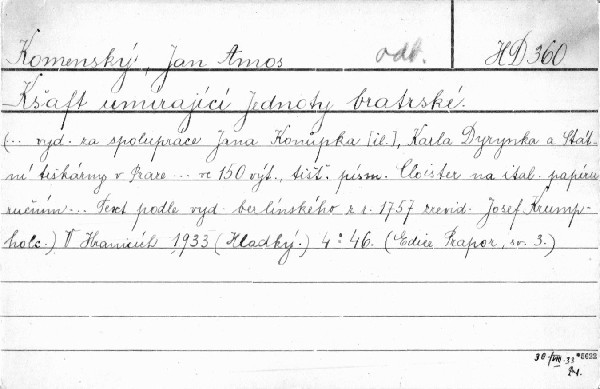 Komenský, Jan Amos odb. HD 360
Kšaft umírající Jednoty bratrské.
(... vyd. za spolupráce Jana Konůpka [il.], Karla Dyrynka a Stát-
ní tiskárny v Praze ... ve 150 výt., tišt. písm. Cloister na ital. papíru
ručním ... Text podle vyd. berlínského z r. 1757 zrevid. Josef Krump-
holc.) V Hranicích 1933 (Hladký.) 4° 46. (Edice Prapor, sv. 3.)
30/VIII.33 *5622